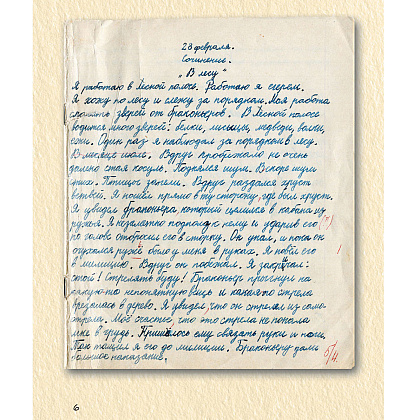 28 февраля.
Сочинение.
„В лесу"
Я работаю в лесной полосе. Работаю я егерем.
Я хожу по лесу и слежу за порядком. Моя работа
спасать зверей от браконьеров. В лесной полосе
водится много зверей: белки, лисицы, медведи, волки,
ежи. Один раз я наблюдал за порядком в лесу.
В месяце июле. Вдруг пробежало не очень
далеко стая косуль. Поднялся шум. Вскоре шум
стих. Птицы запели. Вдруг раздался хруст
ветвей. Я пошёл прямо в ту сторону, где был хруст.
Я увидел браконьера, который целился в кабана из
ружья. Я незаметно подполз к нему и ударив его
по голове отбросил его в сторону. Он упал, и пока он
очухался ружьё было у меня в руках. Я повёл его
в милицию. Вдруг он побежал. Я закричал:
стой! Стрелять буду! Браконьер прыгнул на
какую-то непонятную вещь и какая то стрела
врезалась в дерево. Я увидел что он стрелял из само-
стрела. Моё счастье что эта стрела не попала
мне в грудь. Пришлось ему связать руки и ноги.
Так тащил я его до милиции. Браконьеру дали
большое наказание.
5/4
6